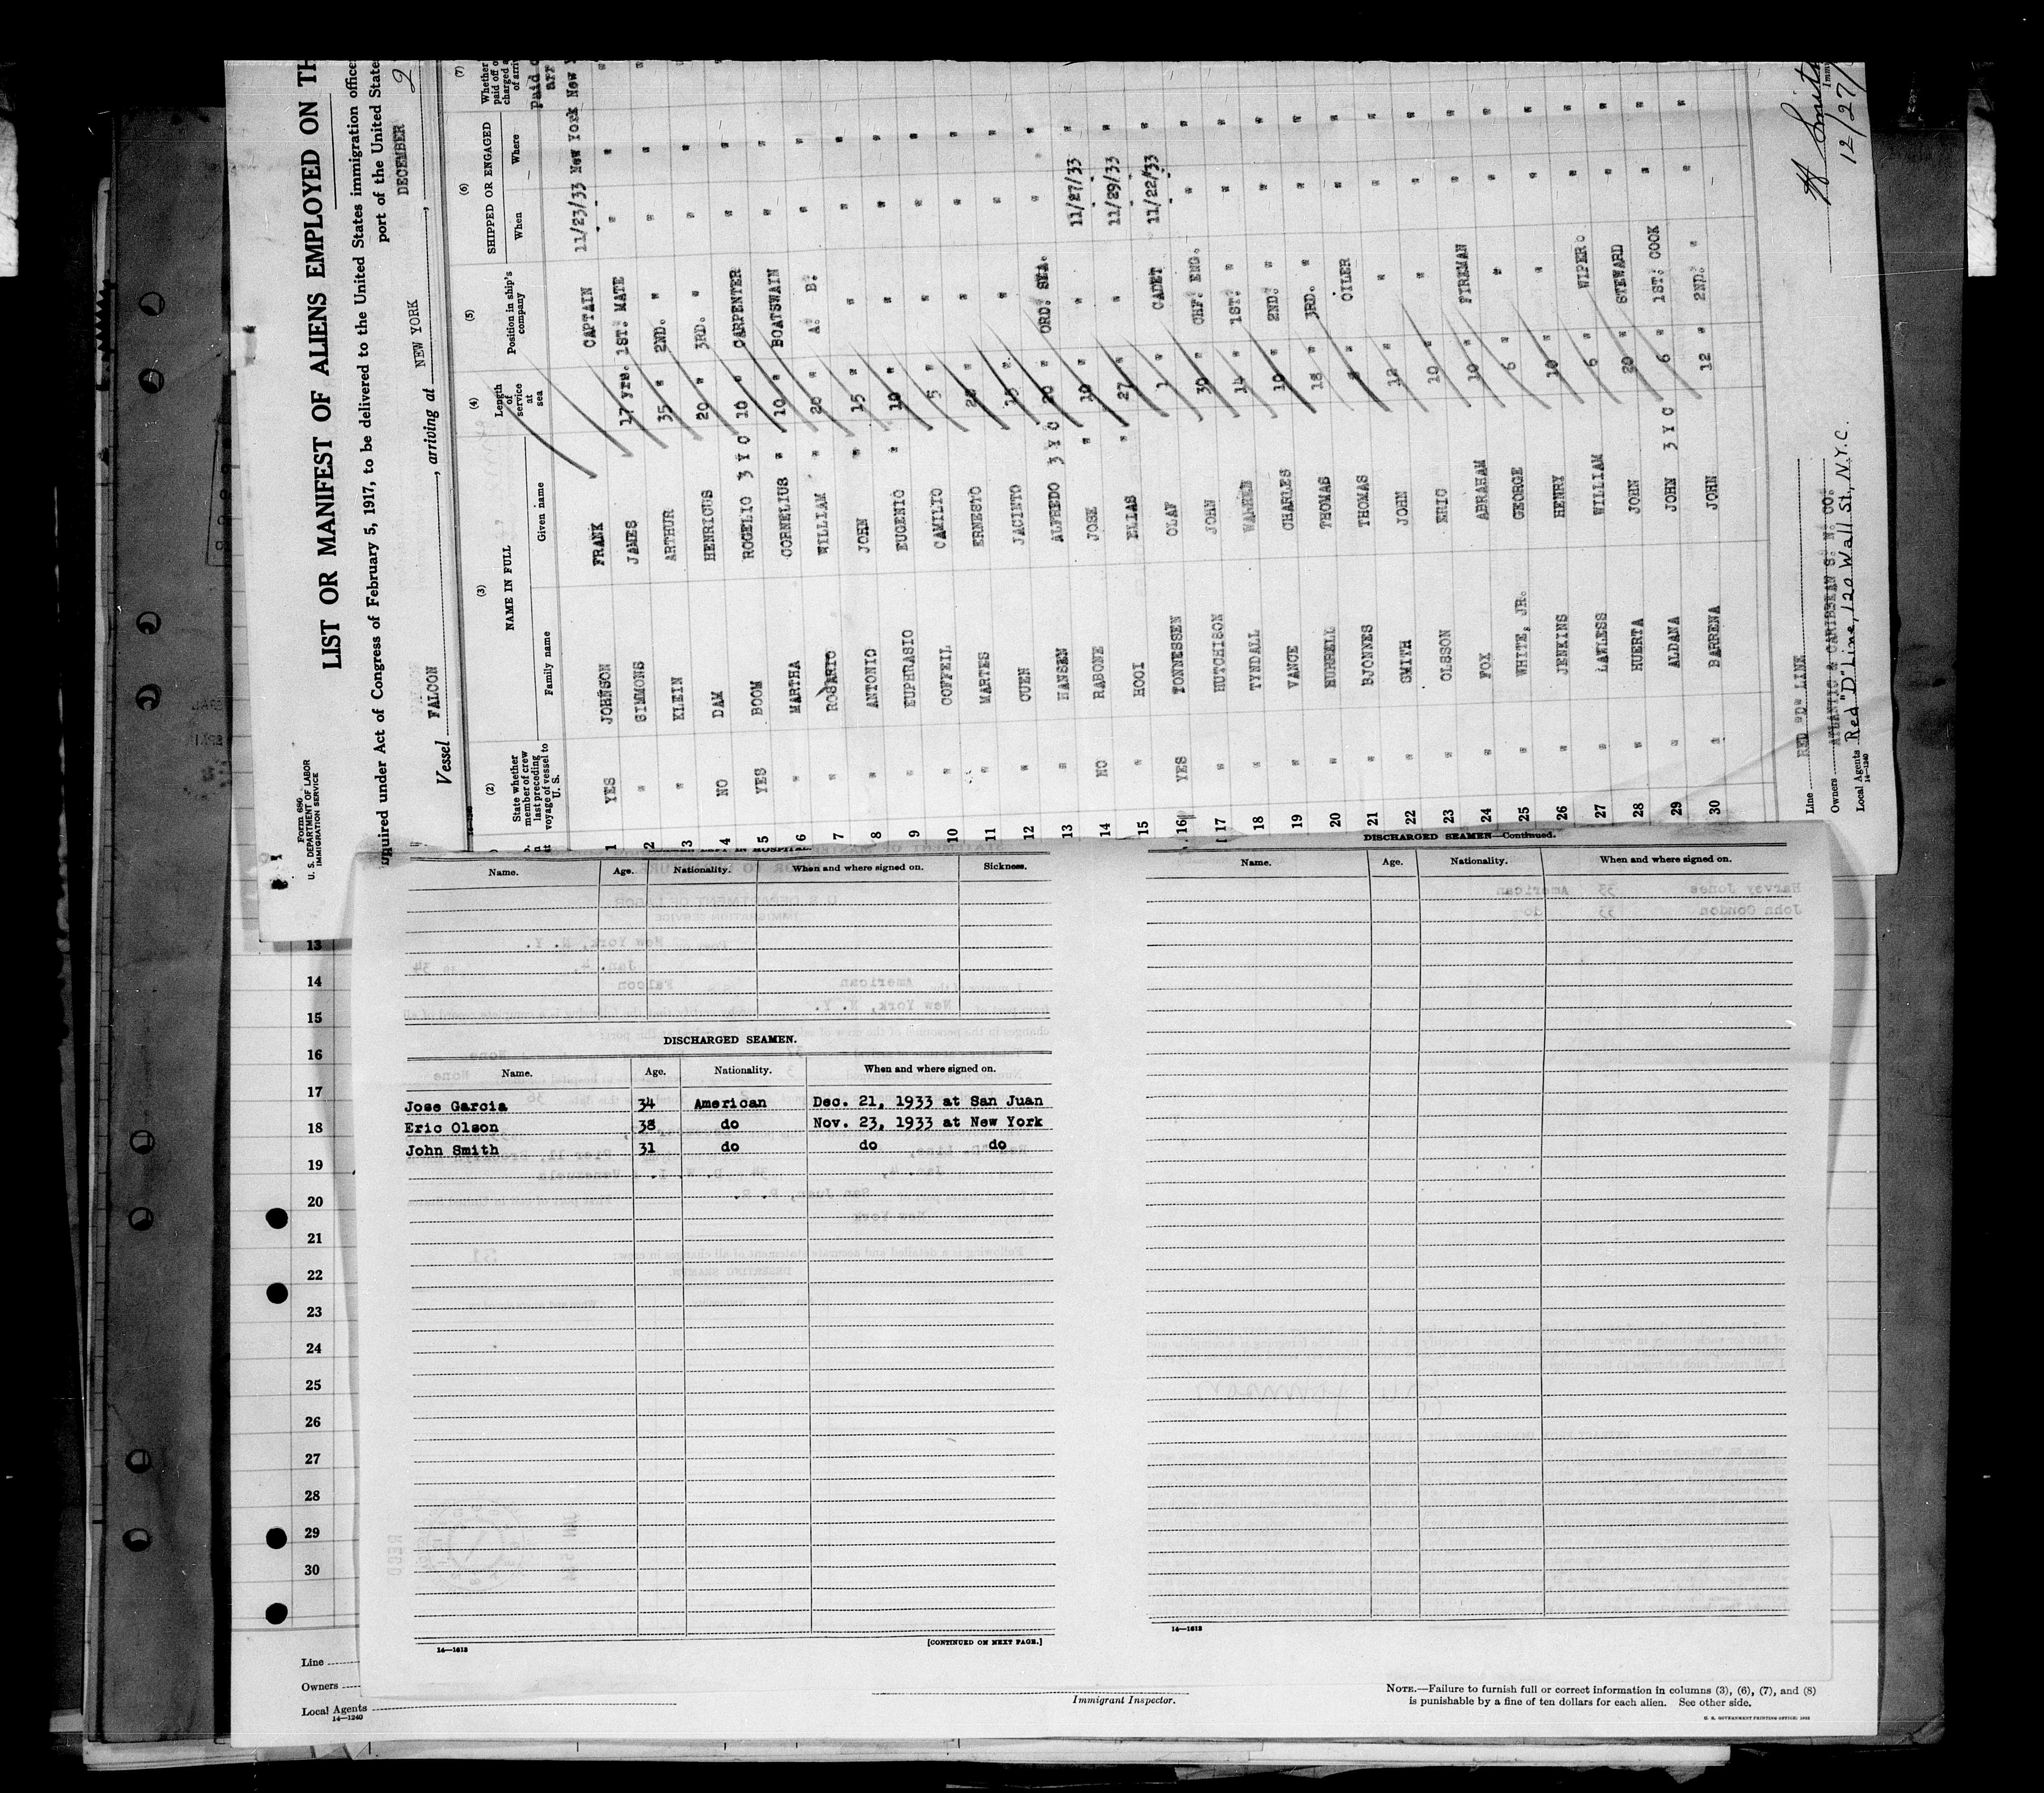 Form 686
U. S. DEPARTMENT OF LABOR
IMMIGRATION SERVICE
LIST OR MANIFEST OF ALIENS EMPLOYED ON TH
quired under Act of Congress of February 5, 1917, to be delivered to the United States immigration office
port of the United State
Vessel FALCON, arriving at NEW YORK, DECEMBER 2
(2) (3) (4) (5) (6) (7)
State whether member of crew last preceding voyage of vessel to U. S.
NAME IN FULL
Family name Given name
Length of service at sea
Position in ship's company
SHIPPED OR ENGAGED
When Where
Whether paid off o charged a of arriv
1 YES JOHNSON FRANK CAPTAIN 11/23/33 New York New Y
2 " SIMMONS JAMES 17 yrs. 1ST. MATE " "
3 " KLEIN ARTHUR 35 " 2ND. " " "
4 NO DAM HENRICUS 20 " 3RD. " " "
5 YES BOOM ROGELIO 3 Y C 10 " CARPENTER " "
6 " MARTHA CORNELIUS " 10 " BOATSWAIN " "
7 " ROSARIO WILLIAM " 20 " A. B. " "
8 " ANTONIO JOHN " 15 " " " "
9 " EUPHRASIO EUGENIO " 10 " " " "
10 " COFFEIL CAMILIO 5 " " " "
11 " MARTES ERNESTO " " " "
12 " CUEN JACINTO 15 " " " "
13 " HANSEN ALFREDO 3 Y C 20 " ORD. SEA. 11/27/33 "
14 NO RABONE JOSE " 10 " " 11/29/33 "
15 " HOOI ELIAS " 27 " " 11/22/33 "
16 YES TONNESSEN OLAF 1 " CADET " "
17 " HUTCHISON JOHN 30 " CHF. ENG. " "
18 " TYNDALL WARREN 14 " 1ST. " " "
19 " VANCE CHARLES 19 " 2ND. " " "
20 " THOMAS 18 " 3RD. " " "
21 " BJONES THOMAS " OILER " "
22 " SMITH JOHN 12 " " " "
23 " OLSSON ERIC 10 " " " "
24 " FOX ABRAHAM 10 " FIREMAN " "
25 " WHITE, JR. GEORGE 6 " " " "
26 " JENKINS HENRY 10 " " " "
27 " LAWLESS WILLIAM 6 " WIPER " "
28 " HUERTA JOHN 20 " STEWARD " "
29 " ALDANA JOHN 3 Y C 6 " 1ST. COOK " "
30 " BARRENA JOHN 12 " 2ND. " " "
Line RED "D" LINE
Owners ATLANTIC & CARIBBEAN S. N. CO.
Local Agents Red "D" Line, 120 Wall St., N.Y.C.
14—1240
H Smith
12/27/
Name. Age. Nationality. When and where signed on. Sickness.
DISCHARGED SEAMEN.
Name. Age. Nationality. When and where signed on.
Jose Garcia 34 American Dec. 21, 1933 at San Juan
Eric Olson 38 do Nov. 23, 1933 at New York
John Smith 31 do do do
14—1613
[CONTINUED ON NEXT PAGE.]
DISCHARGED SEAMEN—Continued.
Name. Age. Nationality. When and where signed on.
14—1613
13
14
15
16
17
18
19
20
21
22
23
24
25
26
27
28
29
30
Line
Owners
Local Agents
14—1240
Immigrant Inspector.
NOTE.—Failure to furnish full or correct information in columns (3), (6), (7), and (8)
is punishable by a fine of ten dollars for each alien. See other side.
U. S. GOVERNMENT PRINTING OFFICE: 1932